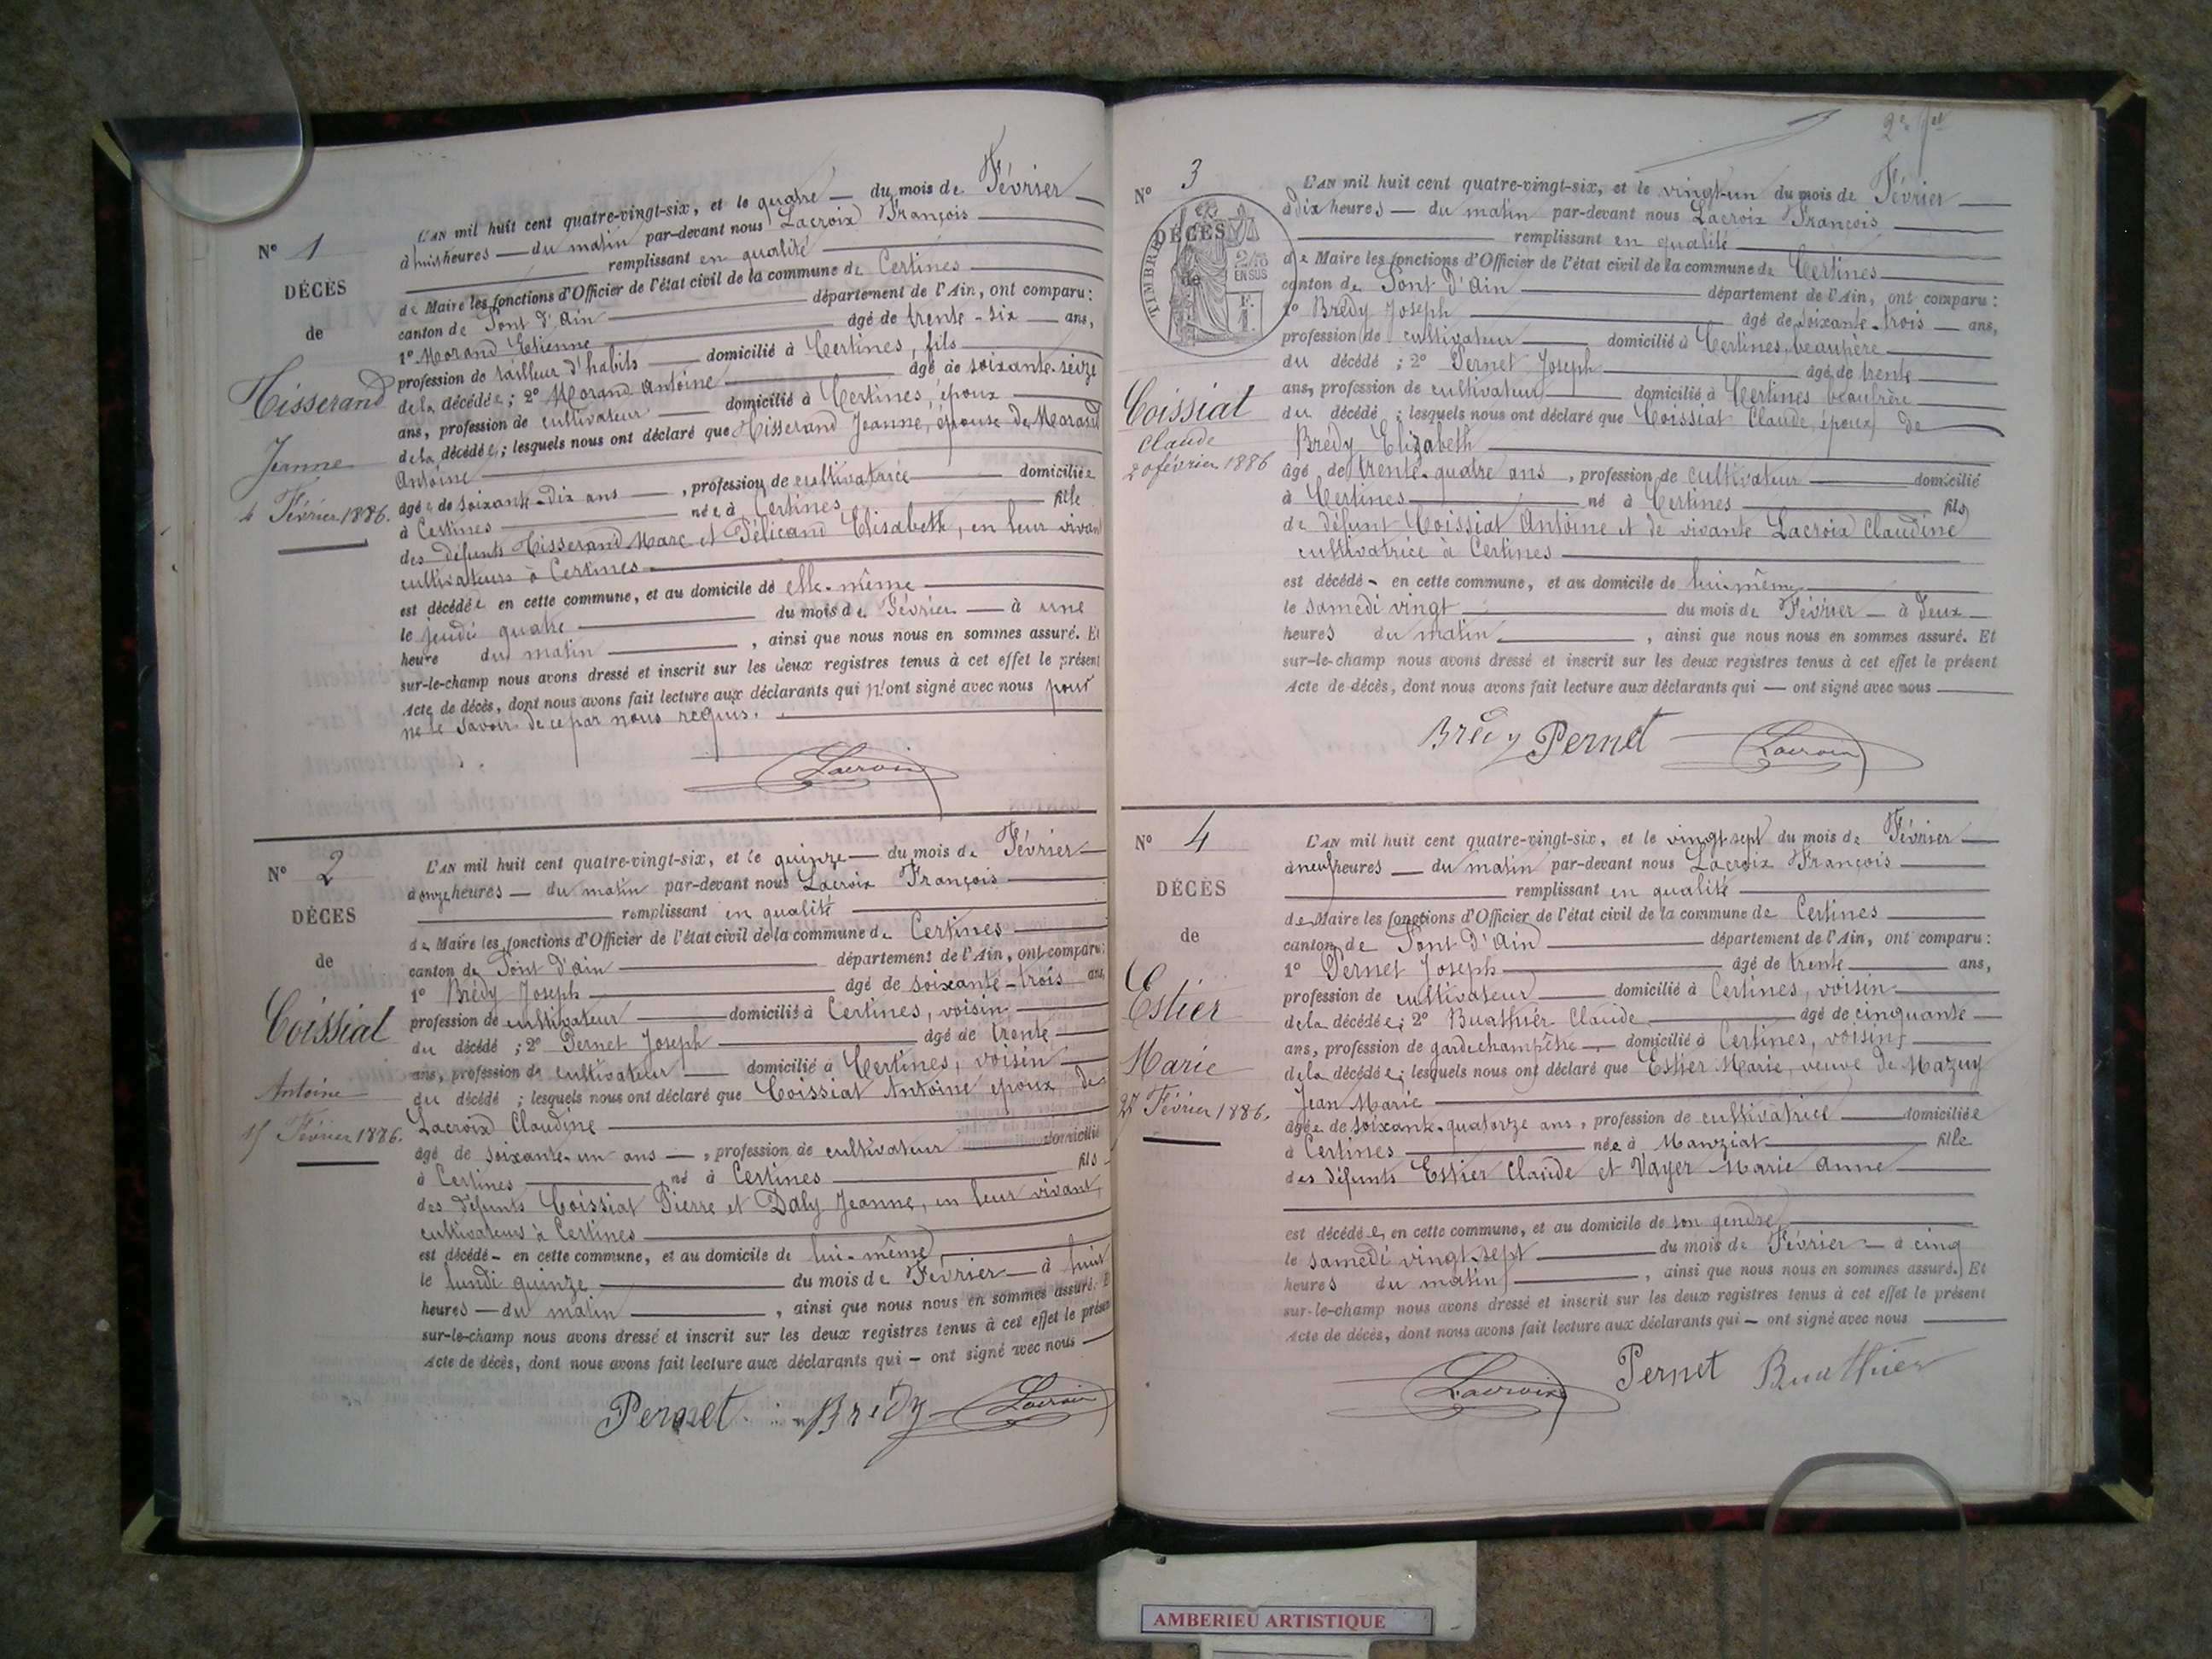 N° 1
DÉCÈS
de
Tisserand
Jeanne
4 Février 1886.
L'AN mil huit cent quatre-vingt-six, et le quatre — du mois de Février
à huit heures — du matin par-devant nous Lacroix François
remplissant en qualité
de Maire les fonctions d'Officier de l'état civil de la commune de Certines
canton de Pont d'Ain département de l'Ain, ont comparu:
1° Morand Etienne âgé de trente-six ans,
profession de tailleur d'habits domicilié à Certines, fils
de la décédée; 2° Morand Antoine âgé de soixante-seize
ans, profession de cultivateur domicilié à Certines, époux
de la décédée; lesquels nous ont déclaré que Tisserand Jeanne, épouse de Morand
Antoine
âgée de soixante-dix ans —, profession de cultivatrice domiciliée
à Certines née à Certines fille
des défunts Tisserand Marc et Pélicand Elisabeth, en leur vivant
cultivateurs à Certines
est décédée en cette commune, et au domicile de elle-même
le jeudi quatre du mois de Février — à une
heure du matin, ainsi que nous nous en sommes assuré. Et
sur-le-champ nous avons dressé et inscrit sur les deux registres tenus à cet effet le présent
Acte de décès, dont nous avons fait lecture aux déclarants qui n'ont signé avec nous pour
ne le savoir de ce par nous requis.
Lacroix
N° 2
DÉCÈS
de
Coissiat
Antoine
15 Février 1886.
L'AN mil huit cent quatre-vingt-six, et le quinze — du mois de Février
à onze heures — du matin par-devant nous Lacroix François
remplissant en qualité
de Maire les fonctions d'Officier de l'état civil de la commune de Certines
canton de Pont d'Ain département de l'Ain, ont comparu:
1° Brédy Joseph âgé de soixante-trois ans,
profession de cultivateur domicilié à Certines, voisin
du décédé; 2° Pernet Joseph âgé de trente
ans, profession de cultivateur domicilié à Certines, voisin
du décédé; lesquels nous ont déclaré que Coissiat Antoine époux de
Lacroix Claudine
âgé de soixante-un ans —, profession de cultivateur domicilié
à Certines né à Certines fils
des défunts Coissiat Pierre et Daly Jeanne, en leur vivant,
cultivateurs à Certines
est décédé - en cette commune, et au domicile de lui-même,
le lundi quinze du mois de Février — à huit
heures — du matin, ainsi que nous nous en sommes assuré. Et
sur-le-champ nous avons dressé et inscrit sur les deux registres tenus à cet effet le présent
Acte de décès, dont nous avons fait lecture aux déclarants qui — ont signé avec nous
Pernet Brédy Lacroix
N° 3
DÉCÈS
de
TIMBRE
2/10 EN SUS
Coissiat
Claude
20 février 1886
L'AN mil huit cent quatre-vingt-six, et le vingt-un du mois de Février
à dix heures — du matin par-devant nous Lacroix François
remplissant en qualité
de Maire les fonctions d'Officier de l'état civil de la commune de Certines
canton de Pont d'Ain département de l'Ain, ont comparu:
1° Brédy Joseph âgé de soixante-trois ans,
profession de cultivateur domicilié à Certines, beaupère
du décédé; 2° Pernet Joseph âgé de trente
ans, profession de cultivateur domicilié à Certines beaufrère
du décédé; lesquels nous ont déclaré que Coissiat Claude, époux de
Brédy Elizabeth
âgé de trente-quatre ans, profession de cultivateur domicilié
à Certines né à Certines fils
de défunt Coissiat Antoine et de vivante Lacroix Claudine
cultivatrice à Certines
est décédé - en cette commune, et au domicile de lui-même
le samedi vingt du mois de Février — à deux
heures du matin, ainsi que nous nous en sommes assuré. Et
sur-le-champ nous avons dressé et inscrit sur les deux registres tenus à cet effet le présent
Acte de décès, dont nous avons fait lecture aux déclarants qui — ont signé avec nous
Brédy Pernet Lacroix
N° 4
DÉCÈS
de
Estier
Marie
27 Février 1886.
L'AN mil huit cent quatre-vingt-six, et le vingt sept du mois de Février
à neuf heures — du matin par-devant nous Lacroix François
remplissant en qualité
de Maire les fonctions d'Officier de l'état civil de la commune de Certines
canton de Pont d'Ain département de l'Ain, ont comparu:
1° Pernet Joseph âgé de trente ans,
profession de cultivateur domicilié à Certines, voisin
de la décédée; 2° Buathier Claude âgé de cinquante
ans, profession de garde champêtre domicilié à Certines, voisins
de la décédée; lesquels nous ont déclaré que Estier Marie, veuve de Mazuy
Jean Marie
âgée de soixante-quatorze ans, profession de cultivatrice domiciliée
à Certines née à Manziat fille
des défunts Estier Claude et Vayer Marie Anne
est décédée, en cette commune, et au domicile de son gendre
le samedi vingt-sept du mois de Février — à cinq
heures du matin, ainsi que nous nous en sommes assuré. Et
sur-le-champ nous avons dressé et inscrit sur les deux registres tenus à cet effet le présent
Acte de décès, dont nous avons fait lecture aux déclarants qui — ont signé avec nous
Lacroix Pernet Buathier
AMBERIEU ARTISTIQUE